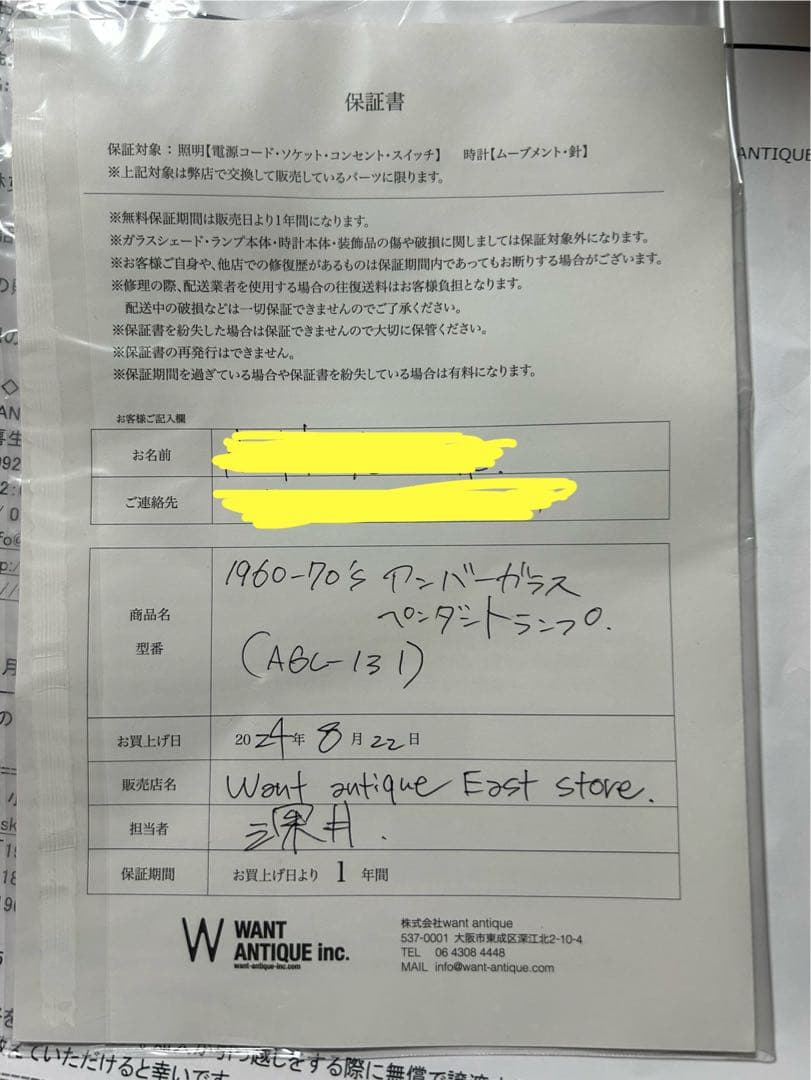 保証書
保証対象：照明【電源コード・ソケット・コンセント・スイッチ】　時計【ムーブメント・針】
※上記対象は弊店で交換して販売しているパーツに限ります。
※無料保証期間は販売日より1年間になります。
※ガラスシェード・ランプ本体・時計本体・装飾品の傷や破損に関しましては保証対象外になります。
※お客様ご自身や、他店での修復歴があるものは保証期間内であってもお断りする場合がございます。
※修理の際、配送業者を使用する場合の往復送料はお客様負担となります。
配送中の破損などは一切保証できませんのでご了承ください。
※保証書を紛失した場合は保証できませんので大切に保管ください。
※保証書の再発行はできません。
※保証期間を過ぎている場合や保証書を紛失している場合は有料になります。
お客様ご記入欄
お名前
ご連絡先
商品名
型番
1960-70's アンバーガラス
ペンダントランプ.
(AGL-131)
お買上げ日 2024年 8月 22日
販売店名 Want antique East store.
担当者 深井.
保証期間 お買上げ日より 1 年間
W WANT
ANTIQUE inc.
want-antique-inc.com
株式会社want antique
537-0001 大阪市東成区深江北2-10-4
TEL 06 4308 4448
MAIL info@want-antique.com
ANTIQUE
えていただけると幸いです
する際に無償で